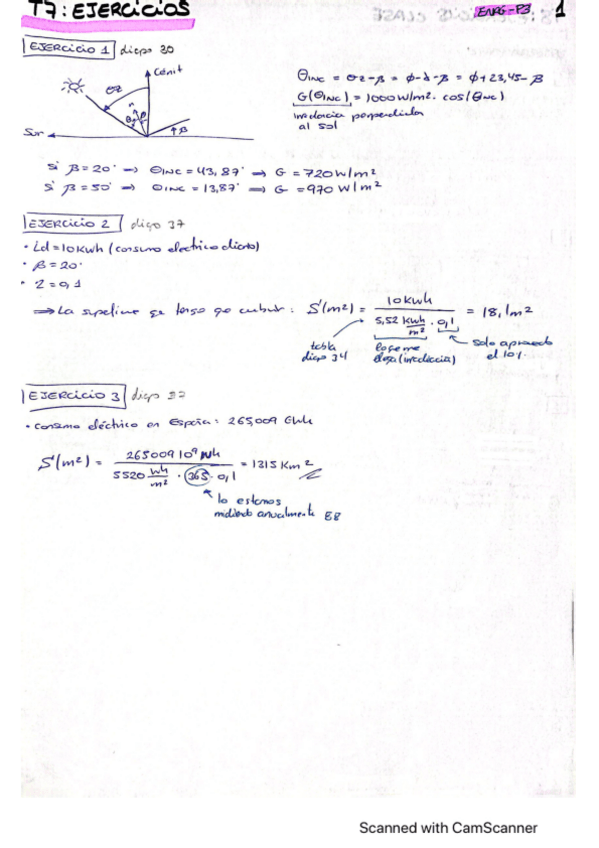 T7: EJERCICIOS ENRG-P3 1
EJERCICIO 1 diapo 30
Cénit
θz
n
β
Sur
β
θINC = θz-β = φ-δ-β = φ+23,45-β
G(θINC) = 1000 W/m². cos(θINC)
irradiancia perpendicular
al sol
Si β = 20° → θINC = 43,87° → G = 720 W/m²
Si β = 50° → θINC = 13,87° → G = 970 W/m²
EJERCICIO 2 diapo 37
• Ld = 10 kWh (consumo electrico diario)
• β = 20°
• η = 0,1
⇒ La superficie que tengo que cubrir: S'(m²) = 10 kWh / 5,52 kWh/m² · 0,1 = 18,1 m²
tabla
diapo 34
lo que me
llega (irradiación)
solo aprovecho
el 10%
EJERCICIO 3 diapo
• consumo eléctrico en España: 265,009 GWh
S'(m²) = 265009 10⁹ Wh / 5520 Wh/m² · 365 · 0,1 = 1315 Km²
lo estamos
midiendo anualmente
Scanned with CamScanner